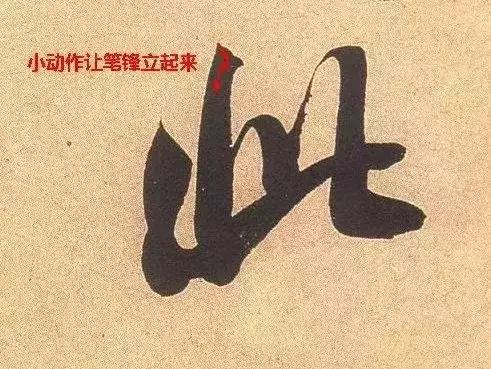 小动作让笔锋立起来
此